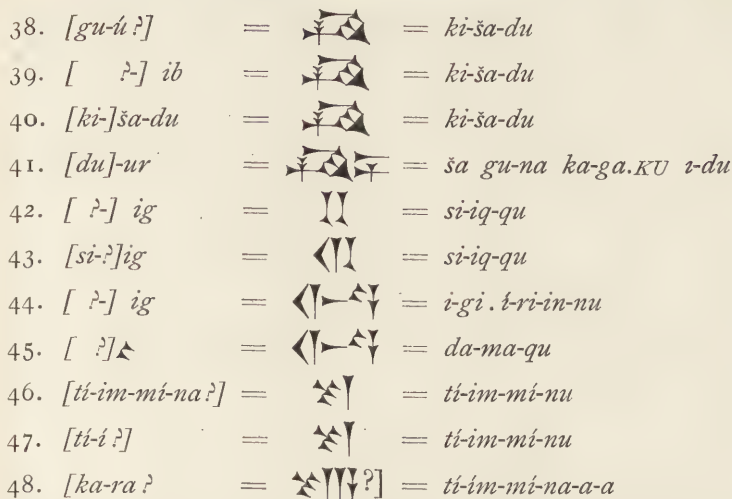 38. [gu-ú ?] = = ki-ša-du
39. [ ?-] ib = = ki-ša-du
40. [ki-]ša-du = = ki-ša-du
41. [du]-ur = = ša gu-na ka-ga.KU i-du
42. [ ?-] ig = = si-iq-qu
43. [si-?]ig = = si-iq-qu
44. [ ?-] ig = = i-gi . í-ri-in-nu
45. [ ?] = = da-ma-qu
46. [tí-im-mí-na ?] = = tí-im-mí-nu
47. [tí-í ?] = = tí-im-mí-nu
48. [ka-ra ? = ?] = tí-ím-mí-na-a-a